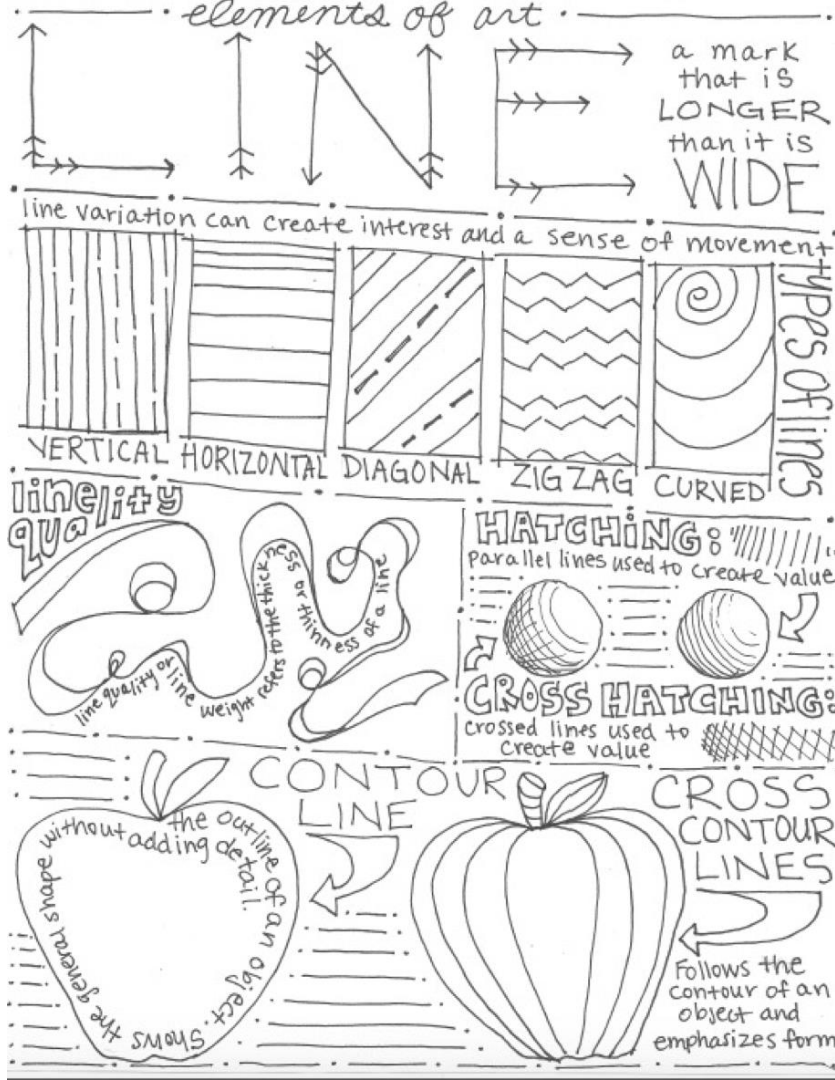 elements of art
LINE
a mark
that is
LONGER
than it is
WIDE
line variation can create interest and a sense of movement
types of lines
VERTICAL
HORIZONTAL
DIAGONAL
ZIG ZAG
CURVED
line
quality
line quality or line weight refers to the thickness or thinness of a line
HATCHING:
parallel lines used to create value
CROSS HATCHING:
crossed lines used to
create value
CONTOUR
LINE
the outline of an object. Shows the general shape without adding detail.
CROSS
CONTOUR
LINES
Follows the
contour of an
object and
emphasizes form